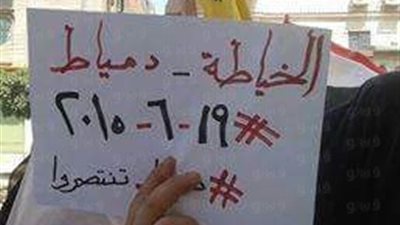 الخياطة - دمياط
#١٩-٦-٢٠١٥
# تنتصروا